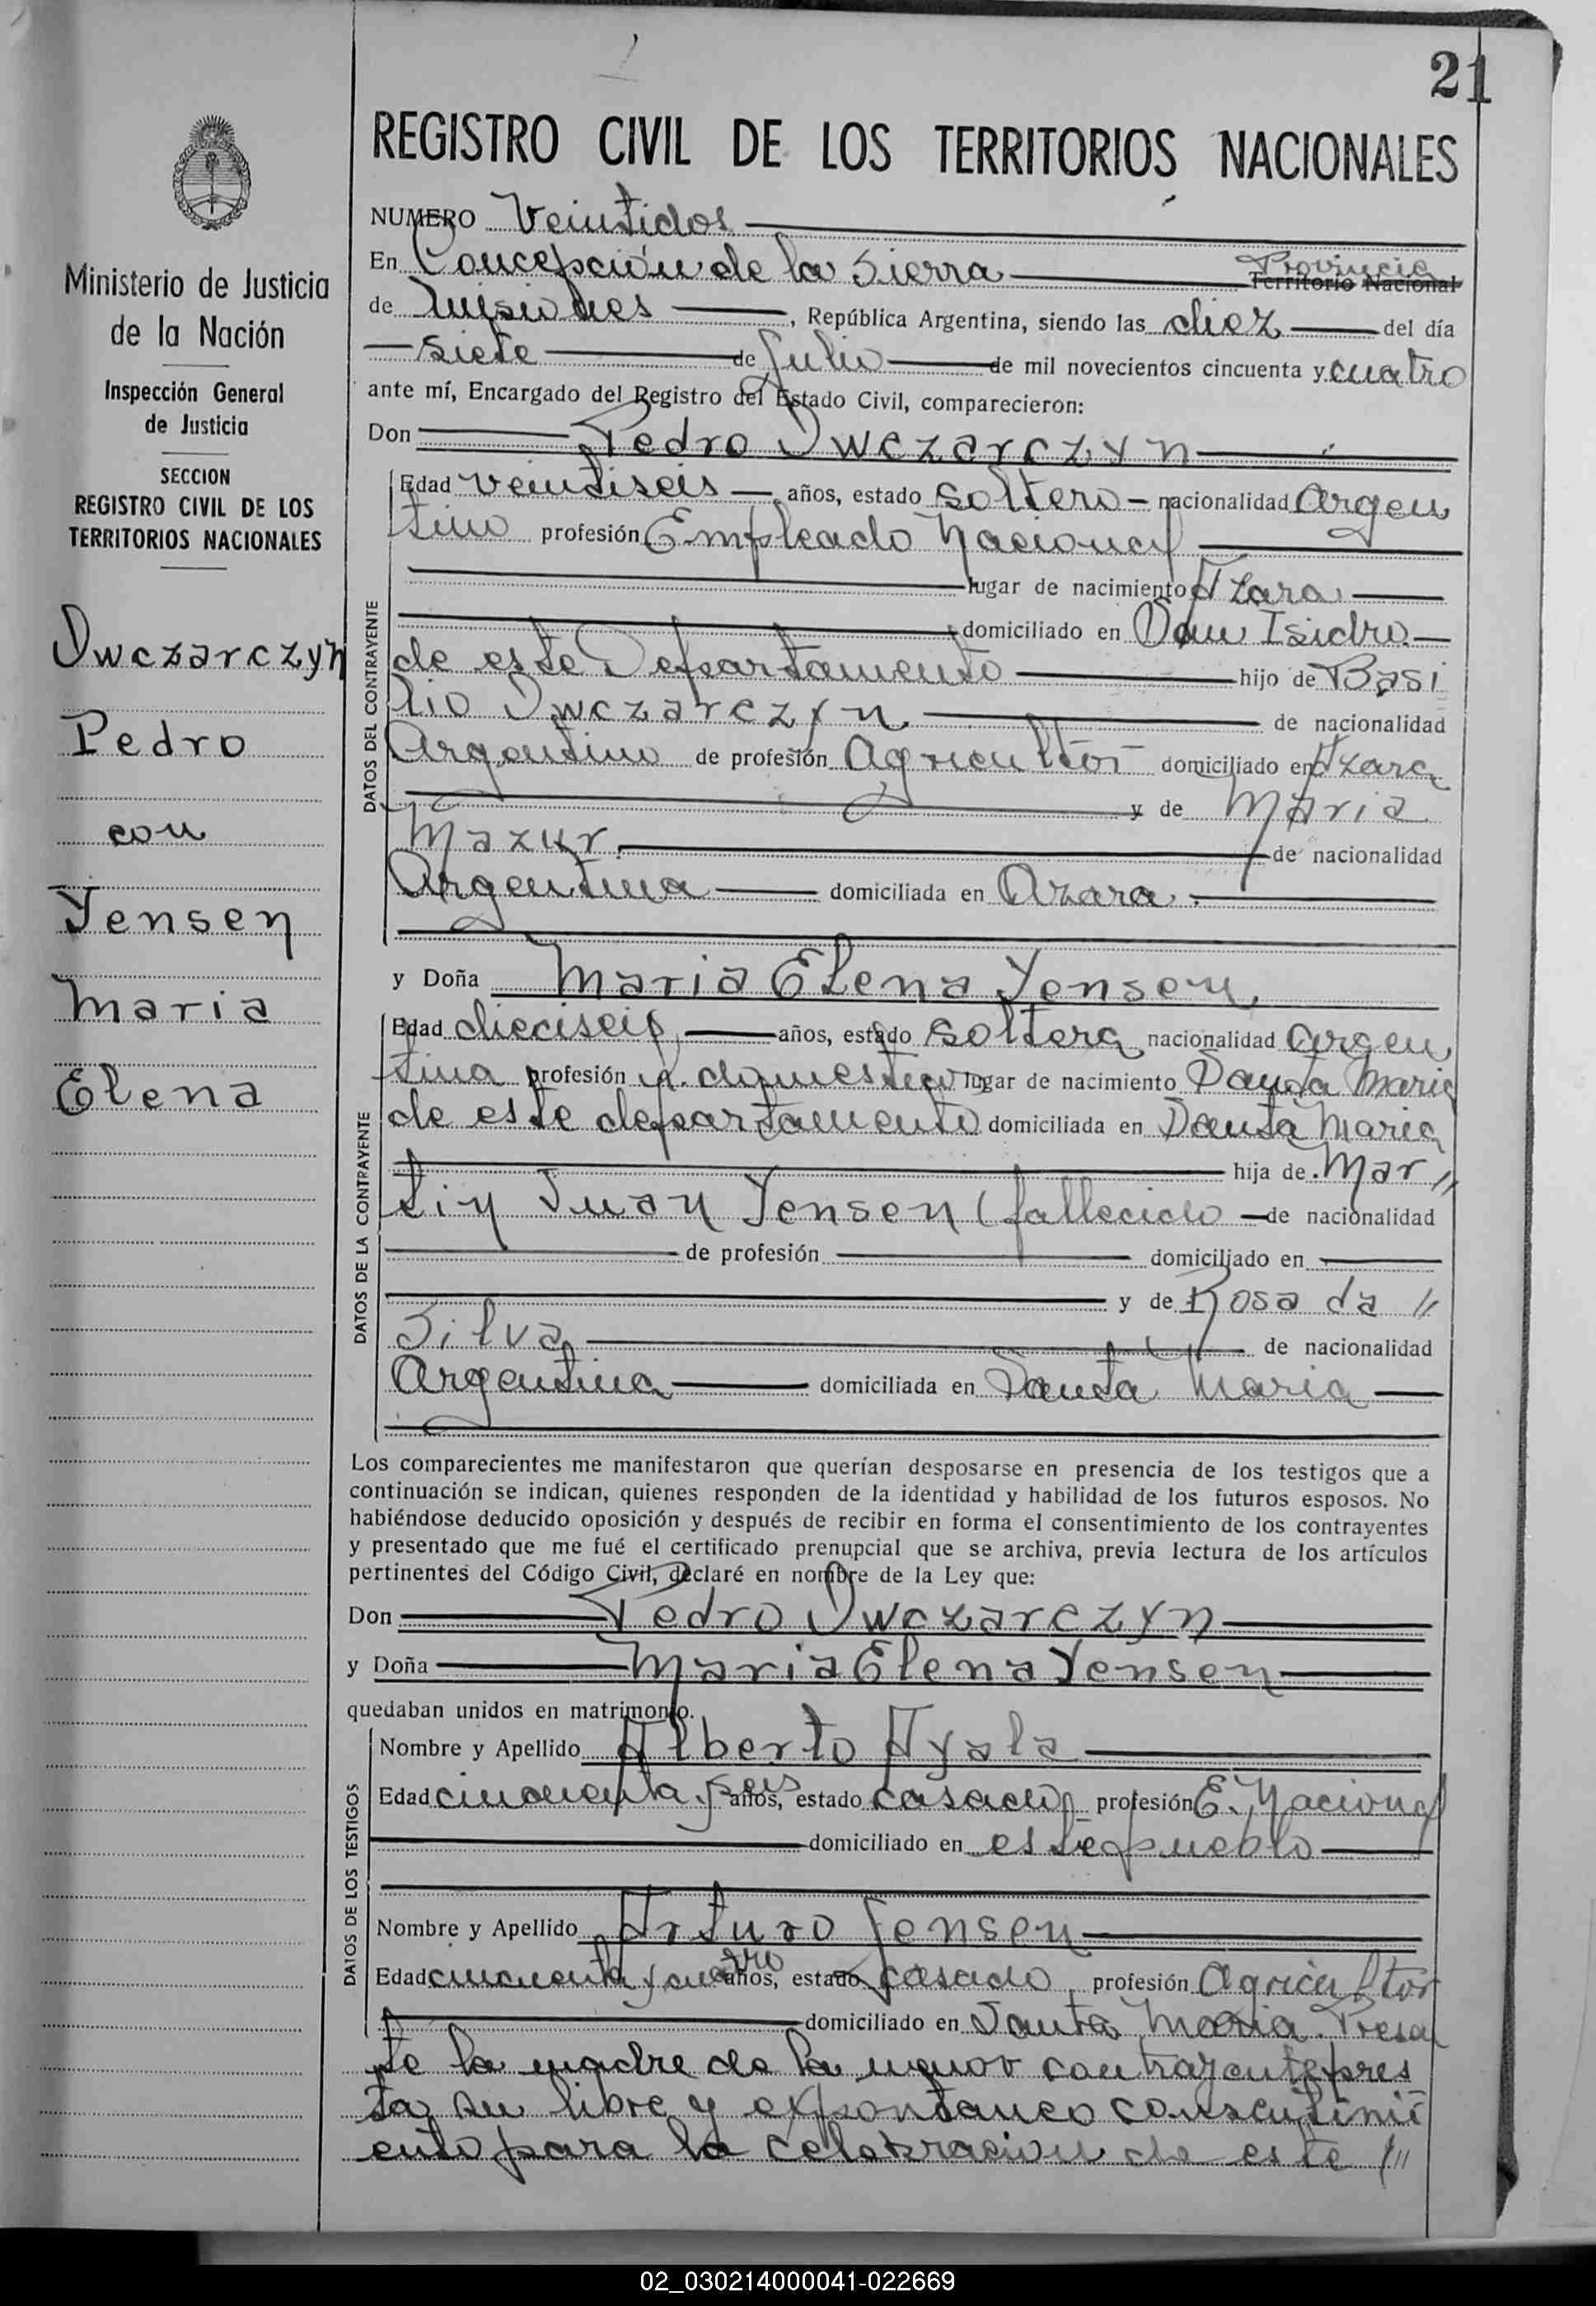 21
REGISTRO CIVIL DE LOS TERRITORIOS NACIONALES
Ministerio de Justicia
de la Nación
Inspección General
de Justicia
SECCION
REGISTRO CIVIL DE LOS
TERRITORIOS NACIONALES
Owczarczyn
Pedro
con
Yensen
Maria
Elena
NUMERO Veintidos
En Concepción de la Sierra Provincia Territorio Nacional
de Misiones, República Argentina, siendo las diez del día
siete de Julio de mil novecientos cincuenta y cuatro
ante mí, Encargado del Registro del Estado Civil, comparecieron:
Don Pedro Owczarczyn
DATOS DEL CONTRAYENTE
Edad veintiseis años, estado soltero nacionalidad argen
tino profesión Empleado Nacional
lugar de nacimiento Azara
domiciliado en San Isidro
de este Departamento hijo de Basi
lio Owczarczyn de nacionalidad
Argentino de profesión Agricultor domiciliado en Azara
y de Maria
Mazur. de nacionalidad
Argentina domiciliada en Azara.
y Doña Maria Elena Yensen,
DATOS DE LA CONTRAYENTE
Edad dieciseis años, estado soltera nacionalidad argen
tina profesión q. domesticos lugar de nacimiento Santa Maria
de este departamento domiciliada en Santa Maria
hija de Mar //
tin Juan Yensen (fallecido de nacionalidad
de profesión domiciliado en
y de Rosa da //
Silva de nacionalidad
Argentina domiciliada en Santa Maria
Los comparecientes me manifestaron que querían desposarse en presencia de los testigos que a
continuación se indican, quienes responden de la identidad y habilidad de los futuros esposos. No
habiéndose deducido oposición y después de recibir en forma el consentimiento de los contrayentes
y presentado que me fué el certificado prenupcial que se archiva, previa lectura de los artículos
pertinentes del Código Civil, declaré en nombre de la Ley que:
Don Pedro Owczarczyn
y Doña Maria Elena Yensen
quedaban unidos en matrimonio.
DATOS DE LOS TESTIGOS
Nombre y Apellido Alberto Ayala
Edad cincuenta y seis años, estado casado profesión E. Nacional
domiciliado en este pueblo
Nombre y Apellido Arturo Jensen
Edad cincuenta y cuatro años, estado casado profesión Agricultor
domiciliado en Santa Maria. Presen
te la madre de la menor contrayente pres
ta su libre y expontaneo consentimi
ento para la celebracion de este ///
02_030214000041-022669